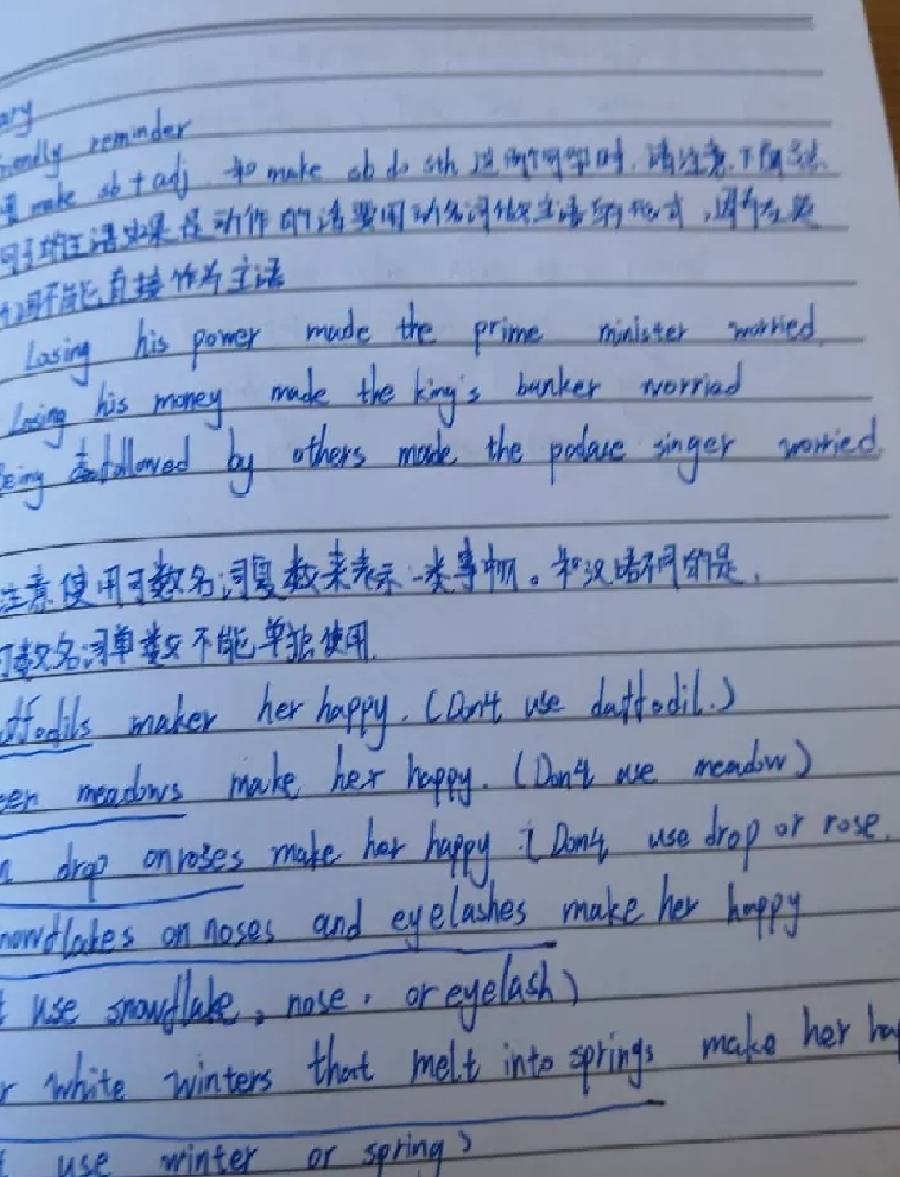 ary
iendly reminder
make sb + adj 和 make sb do sth 这两个句型时，请注意下面方法
句子的主语如果是动作的话要用动名词做主语的形式，因为
词不能直接作为主语
Losing his power made the prime minister worried.
Losing his money made the king's banker worriad
eing followed by others made the palace singer worried.
注意使用可数名词复数来表示一类事物。和汉语不同的是，
可数名词单数不能单独使用.
ffodils maker her happy. (Don't use daffodil.)
een meadows make her happy. (Don't use meadow)
n drop on roses make her happy (Don't use drop or rose.
nowflakes on noses and eyelashes make her happy
t use snowflake, nose, or eyelash)
r white winters that melt into springs make her ha
t use winter or spring)